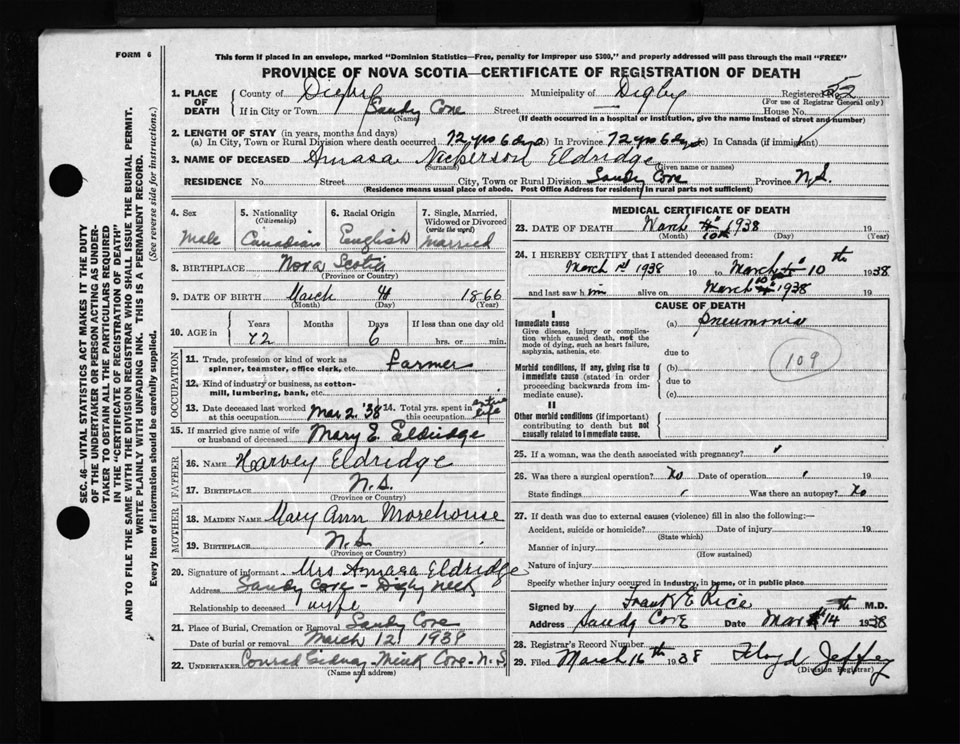 FORM 6
This form if placed in an envelope, marked "Dominion Statistics—Free, penalty for improper use $300," and properly addressed will pass through the mail "FREE"
PROVINCE OF NOVA SCOTIA—CERTIFICATE OF REGISTRATION OF DEATH
SEC. 46—VITAL STATISTICS ACT MAKES IT THE DUTY
OF THE UNDERTAKER OR PERSON ACTING AS UNDER-
TAKER TO OBTAIN ALL THE PARTICULARS REQUIRED
IN THE "CERTIFICATE OF REGISTRATION OF DEATH"
AND TO FILE THE SAME WITH THE DIVISION REGISTRAR WHO SHALL ISSUE THE BURIAL PERMIT.
WRITE PLAINLY WITH UNFADING INK. THIS IS A PERMANENT RECORD.
Every item of information should be carefully supplied. (See reverse side for instructions.)
1. PLACE OF DEATH
County of Digby Municipality of Digby Registered No. 52
(For use of Registrar General only)
If in City or Town Sandy Cove Street — House No.
(Name) (If death occurred in a hospital or institution, give the name instead of street and number)
2. LENGTH OF STAY (in years, months and days)
(a) In City, Town or Rural Division where death occurred 72 yrs 6 dys (b) In Province 72 yrs 6 dys (c) In Canada (if immigrant)
3. NAME OF DECEASED Amasa Nickerson Eldridge
(Surname) (Given name or names)
RESIDENCE No. Street City, Town or Rural Division Sandy Cove Province N.S.
(Residence means usual place of abode. Post Office Address for residents in rural parts not sufficient)
4. Sex Male
5. Nationality (Citizenship) Canadian
6. Racial Origin English
7. Single, Married, Widowed or Divorced (write the word) Married
8. BIRTHPLACE Nova Scotia
(Province or Country)
9. DATE OF BIRTH March 4 1866
(Month) (Day) (Year)
10. AGE in Years 72 Months Days 6 If less than one day old hrs. or min.
OCCUPATION
11. Trade, profession or kind of work as spinner, teamster, office clerk, etc. Farmer
12. Kind of industry or business, as cotton-mill, lumbering, bank, etc.
13. Date deceased last worked at this occupation Mar 2. '38
14. Total yrs. spent in this occupation entire life
15. If married give name of wife or husband of deceased Mary E. Eldridge
FATHER
16. NAME Harvey Eldridge
17. BIRTHPLACE N.S.
(Province or Country)
MOTHER
18. MAIDEN NAME Mary Ann Morehouse
19. BIRTHPLACE N.S.
(Province or Country)
20. Signature of informant Mrs Amasa Eldridge
Address Sandy Cove - Digby Neck
Relationship to deceased wife
21. Place of Burial, Cremation or Removal Sandy Cove
Date of burial or removal March 12 1938
22. UNDERTAKER Conrad Gidney - Mink Cove - N.S
(Name and address)
MEDICAL CERTIFICATE OF DEATH
23. DATE OF DEATH March 10th 1938 19
(Month) (Day) (Year)
24. I HEREBY CERTIFY that I attended deceased from:
March 1st 1938 19 to March 10th 1938
and last saw him alive on March 10 1938 19
CAUSE OF DEATH
I
Immediate cause
Give disease, injury or complication which caused death, not the mode of dying, such as heart failure, asphyxia, asthenia, etc.
(a) Pneumonia
due to
109
Morbid conditions, if any, giving rise to immediate cause (stated in order proceeding backwards from immediate cause).
(b)
due to
(c)
II
Other morbid conditions (if important) contributing to death but not causally related to immediate cause.
25. If a woman, was the death associated with pregnancy?
26. Was there a surgical operation? No Date of operation 19
State findings Was there an autopsy? No
27. If death was due to external causes (violence) fill in also the following:—
Accident, suicide or homicide? Date of injury 19
(State which)
Manner of injury
(How sustained)
Nature of injury
Specify whether injury occurred in industry, in home, or in public place
Signed by Frank E Rice M.D.
Address Sandy Cove Date Mar 14th 1938
28. Registrar's Record Number
29. Filed March 16th 1938 Floyd Jeffrey
(Division Registrar)